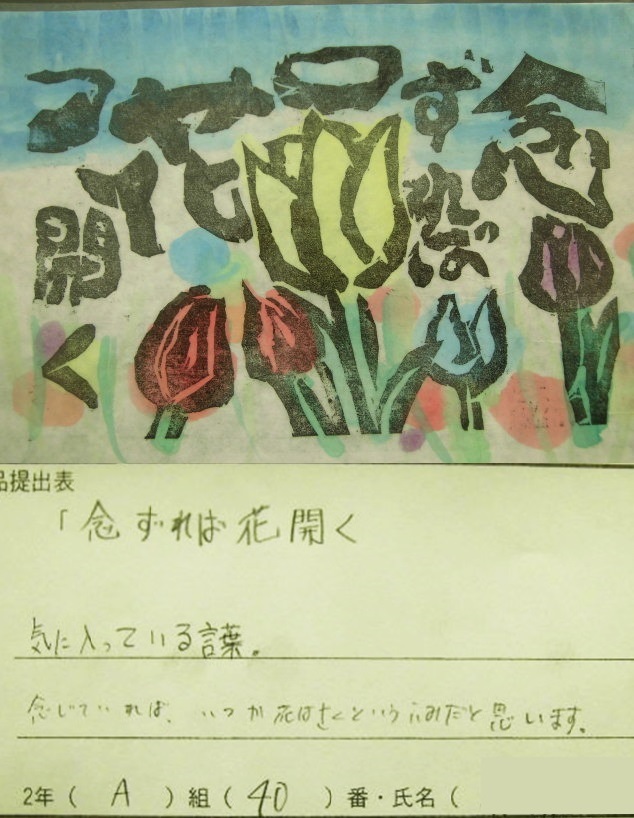 念
ずれば
花
開く
品提出表
「念ずれば花開く
気に入っている言葉。
念じていれば、いつか花はさくといういみだと思います。
2年（ A ）組（ 40 ）番・氏名（